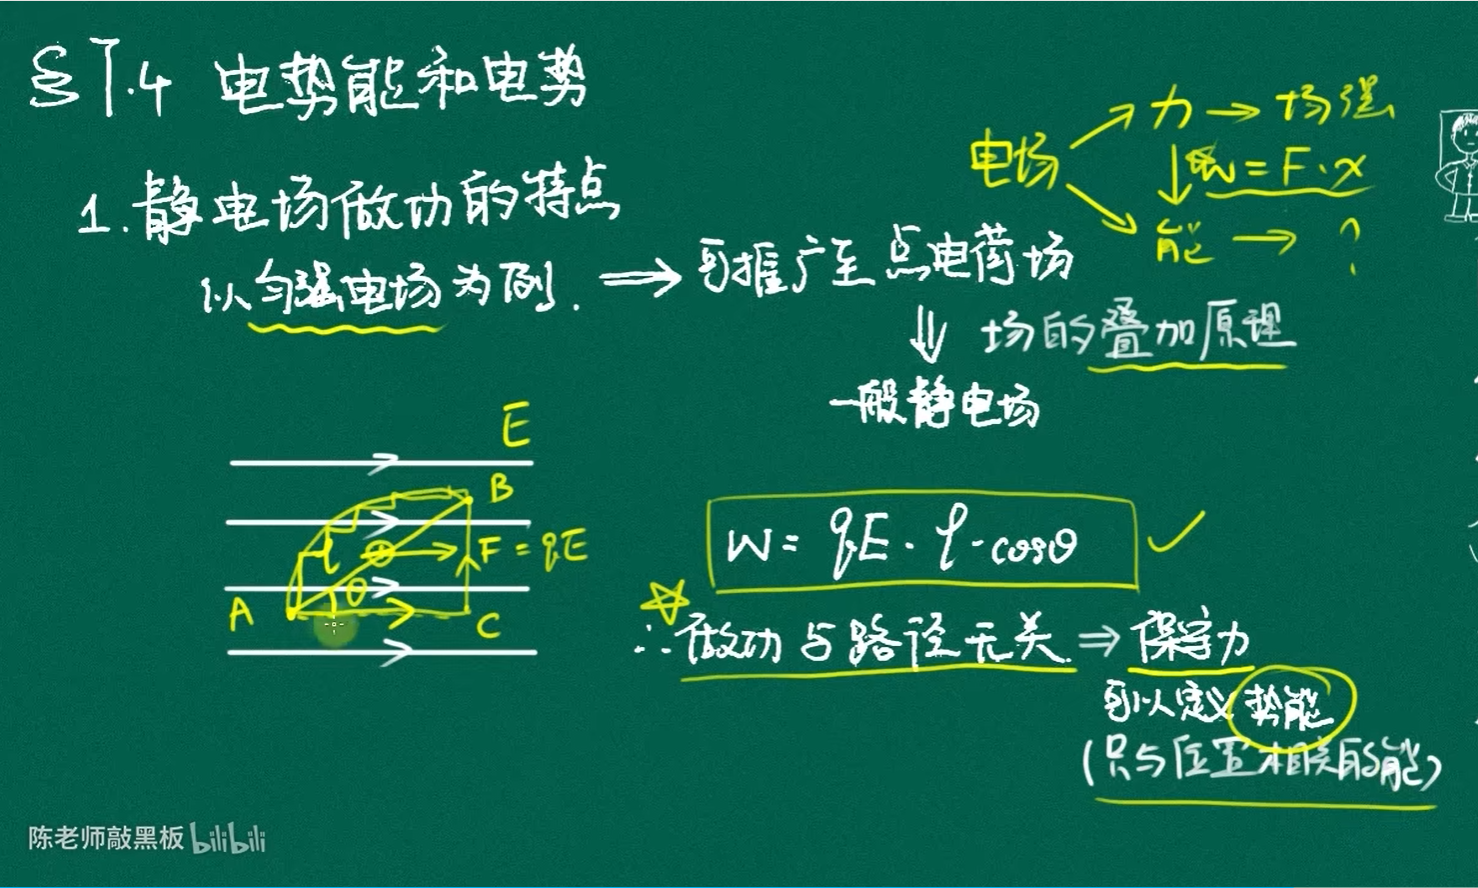 §1.4 电势能和电势
电场 → 力 → 场强
↓ W = F·x
→ 能 → ?
1. 静电场做功的特点
以匀强电场为例. ⇒ 可推广至点电荷场
⇓ 场的叠加原理
一般静电场
E
B
l
F = qE
θ
A
C
W = qE · l · cosθ ✓
☆ ∴ 做功与路径无关. ⇒ 保守力
可以定义势能
(只与位置相关的能)
陈老师敲黑板 bilibili